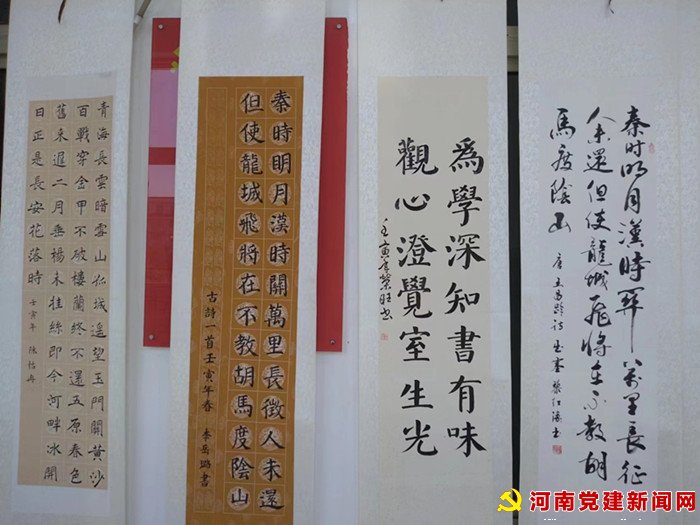 青海長雲暗雪山孤城遙望玉門關黃沙
百戰穿金甲不破樓蘭終不還五原春色
舊來遲二月垂楊未挂絲即今河畔冰開
日正是長安花落時 壬寅年 陳怡冉
秦時明月漢時關萬里長徵人未還
但使龍城飛將在不教胡馬度陰山
古詩一首壬寅年春 李岳璐書
為學深知書有味
觀心澄覺室生光
壬寅 榮旺书
秦时明月漢時関萬里長征
人未還但使龍城飛将在不教胡
馬度陰山 唐王昌齡诗出塞
河南党建新闻网